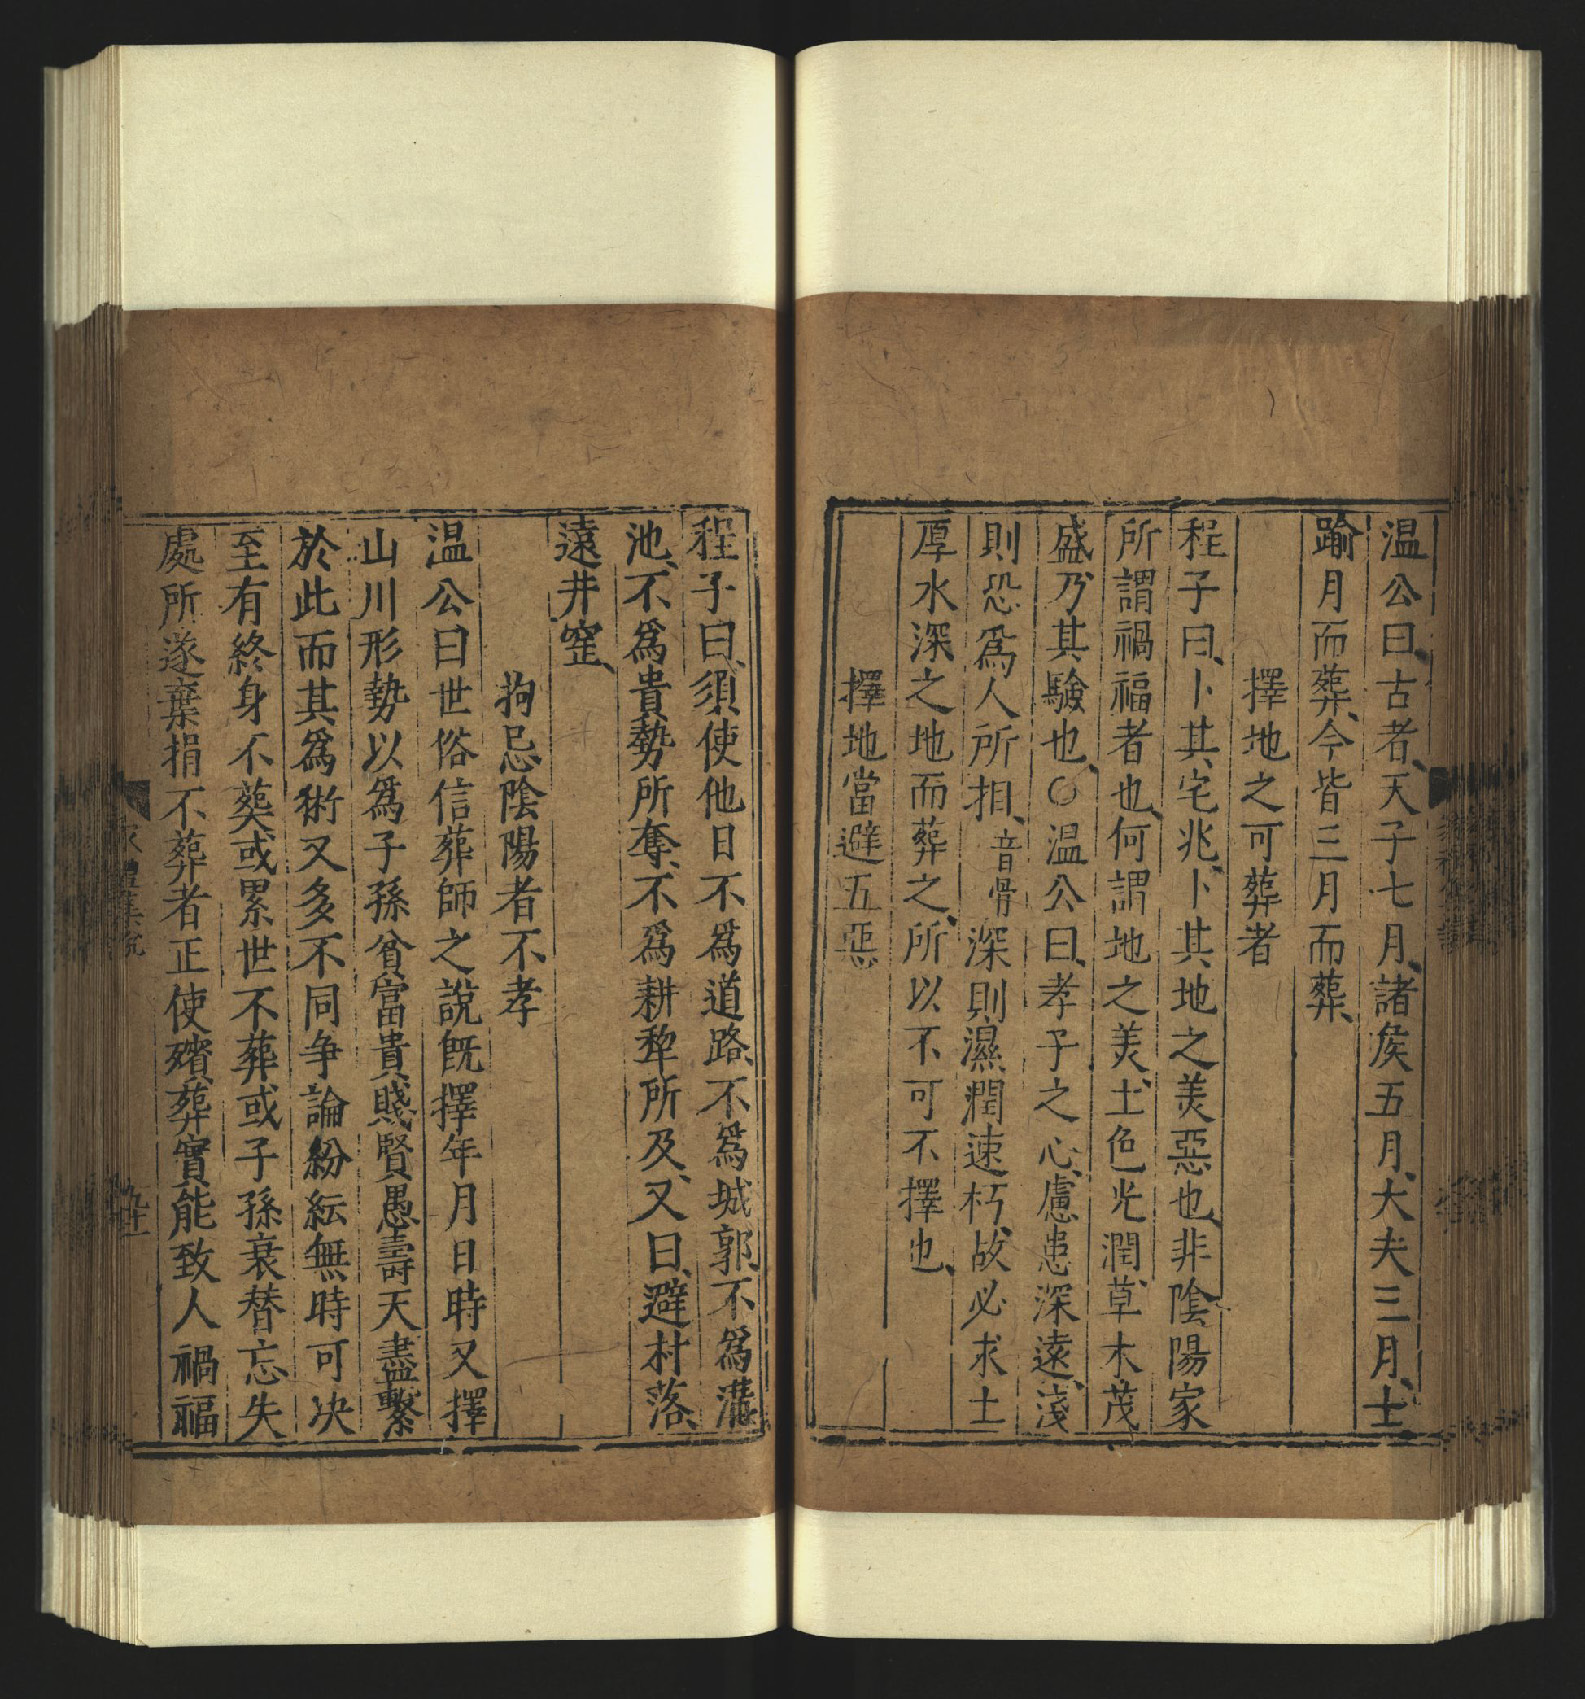 温公曰、古者、天子七月、諸矦五月、大夫三月、士
踰月而葬、今皆三月而葬、
擇地之可葬者
程子曰、卜其宅兆、卜其地之美惡也、非陰陽家
所謂禍福者也、何謂地之美、土色光潤、草木茂
盛、乃其驗也、○温公曰、孝子之心、慮患深遠、淺
則恐爲人所抇、音骨深則濕潤速朽、故必求土
厚水深之地而葬之、所以不可不擇也、
擇地當避五惡
程子曰、須使他日不爲道路、不爲城郭、不爲溝
池、不爲貴勢所奪、不爲耕犂所及、又曰、避村落、
遠井窑、
拘忌陰陽者不孝
温公曰世俗信葬師之說旣擇年月日時又擇
山川形勢以爲子孫貧富貴賤賢愚壽夭盡繫
於此而其爲術又多不同爭論紛紜無時可决
至有終身不葬或累世不葬或子孫衰替忘失
處所遂棄捐不葬者正使殯葬實能致人禍福
家禮集說